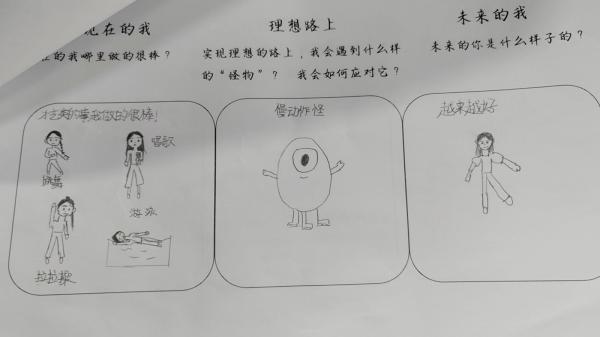 现在的我
的我哪里做的很棒？
理想路上
实现理想的路上，我会遇到什么样
的“怪物”？ 我会如何应对它？
未来的我
未来的你是什么样子的？
做的很棒！
唱歌
跳舞
游泳
拉拉操
慢动作怪
越来越好